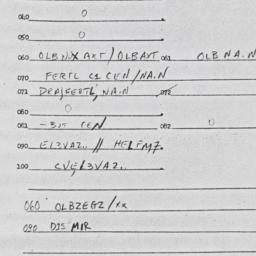 040 0
050 0
060 OLBNX AXT/OLBAXT 061 OLB NA.N
070 FERTL C1 CEN/NA.N
071 DEP,FERTL,NA.N 072
080 0
081 -BOT CEN 082 0
090 EL3VAZ.. // HELFMZ
100 CVE,L3VAZ..
060 OLBZEGZ/XX
090 DIS MIR